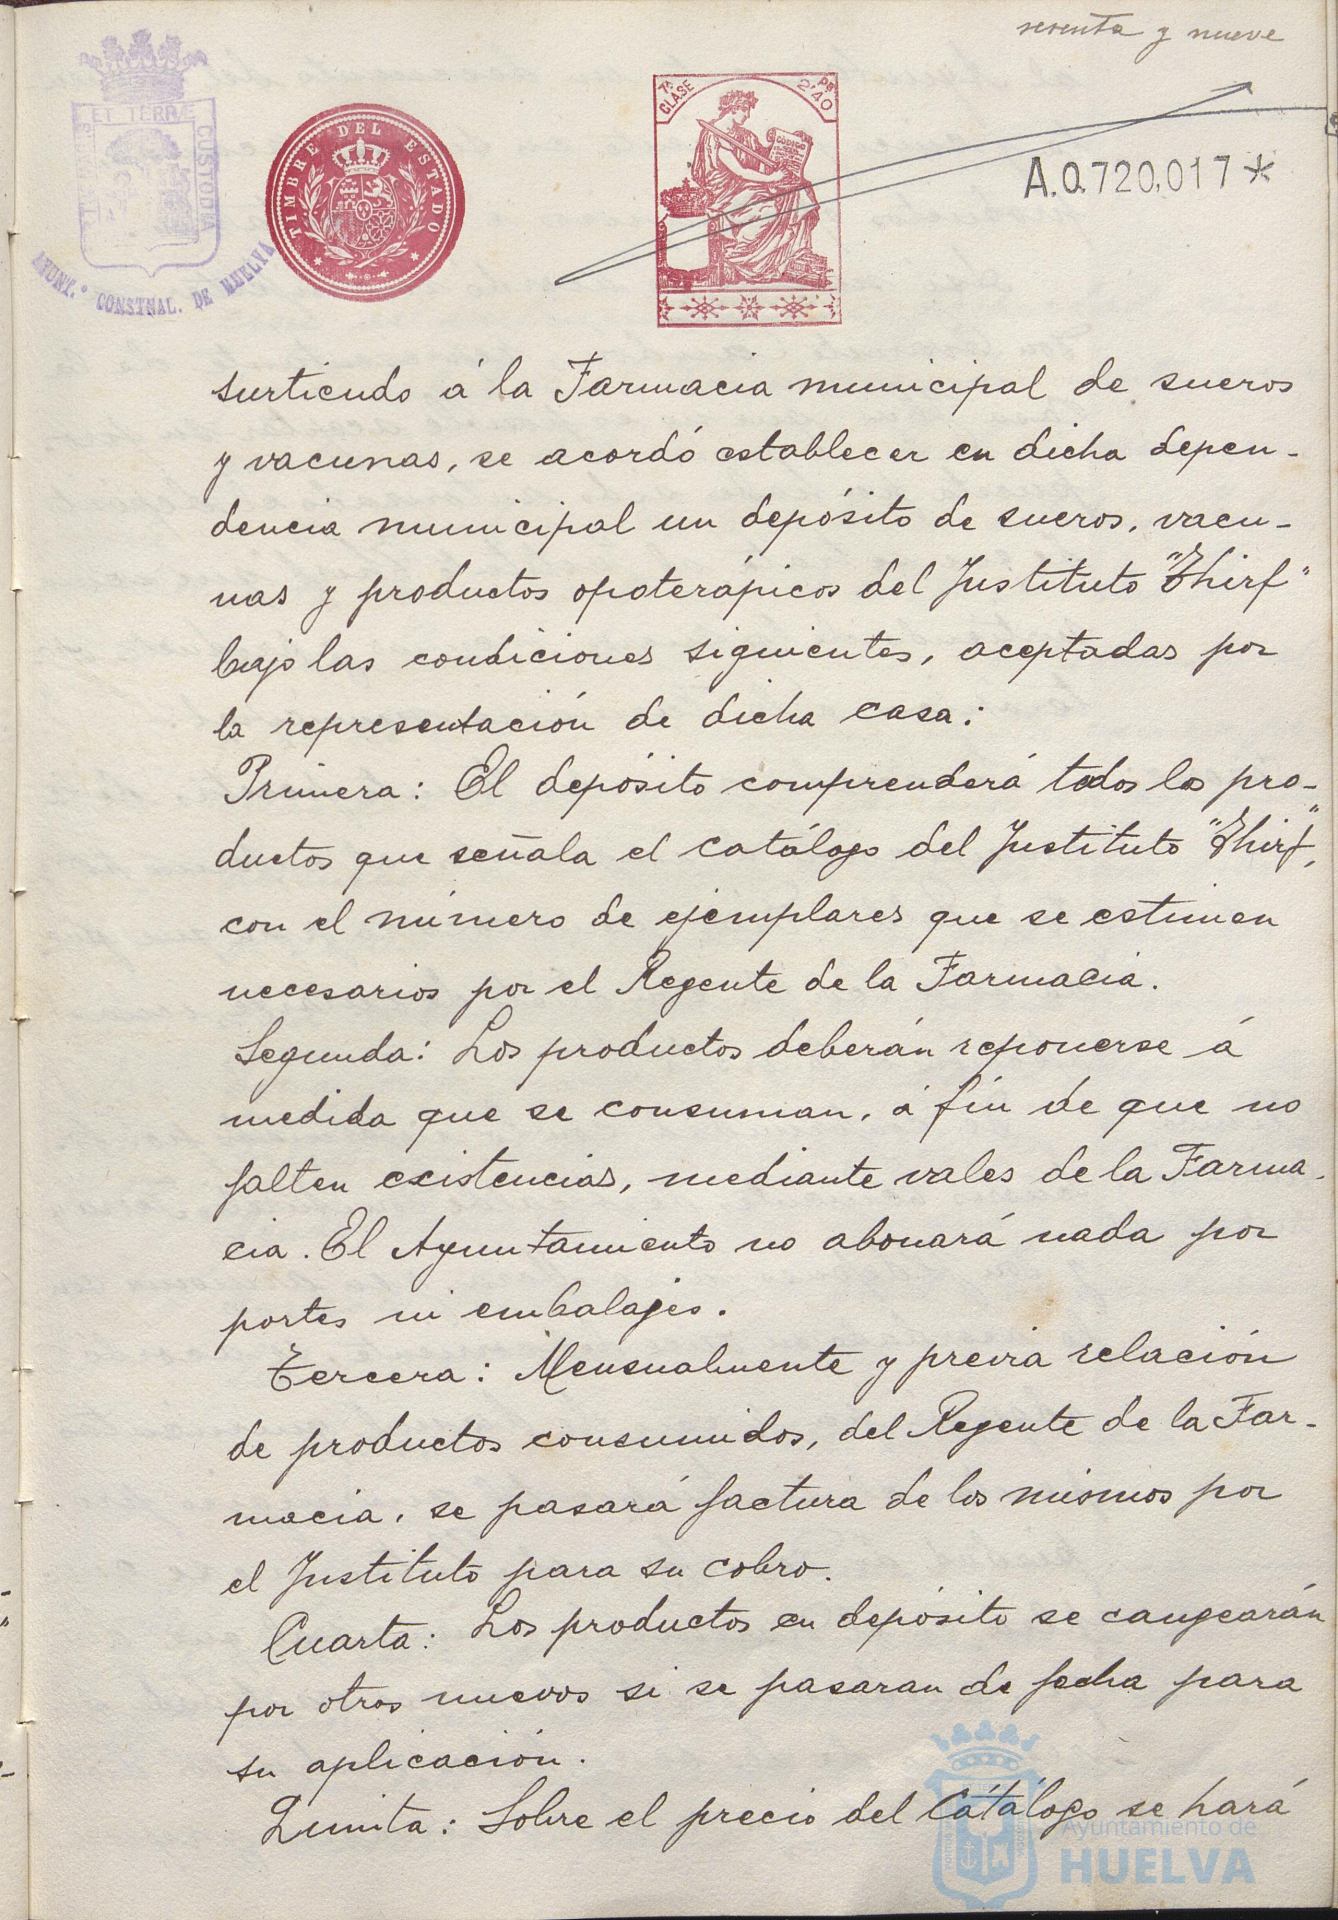 sesenta y nueve
ET TERRÆ
CUSTODIA
AYUNT.º CONSTNAL. DE HUELVA
TIMBRE DEL ESTADO
7ª CLASE
2'40
CÓDIGO
A.0.720,017*
surtiendo á la Farmacia municipal de sueros
y vacunas, se acordó establecer en dicha depen-
dencia municipal un depósito de sueros, vacu-
nas y productos opoterápicos del Instituto "Thirf"
bajo las condiciones siguientes, aceptadas por
la representación de dicha casa:
Primera: El depósito comprenderá todos los pro-
ductos que señala el catálogo del Instituto "Thirf",
con el número de ejemplares que se estimen
necesarios por el Regente de la Farmacia.
Segunda: Los productos deberán reponerse á
medida que se consuman, á fin de que no
falten existencias, mediante vales de la Farma-
cia. El Ayuntamiento no abonará nada por
portes ni embalajes.
Tercera: Mensualmente y previa relación
de productos consumidos, del Regente de la Far-
macia, se pasará factura de los mismos por
el Instituto para su cobro.
Cuarta: Los productos en depósito se cangearán
por otros nuevos si se pasaran de fecha para
su aplicación.
Quinta: Sobre el precio del Catálogo se hará
Ayuntamiento de
HUELVA